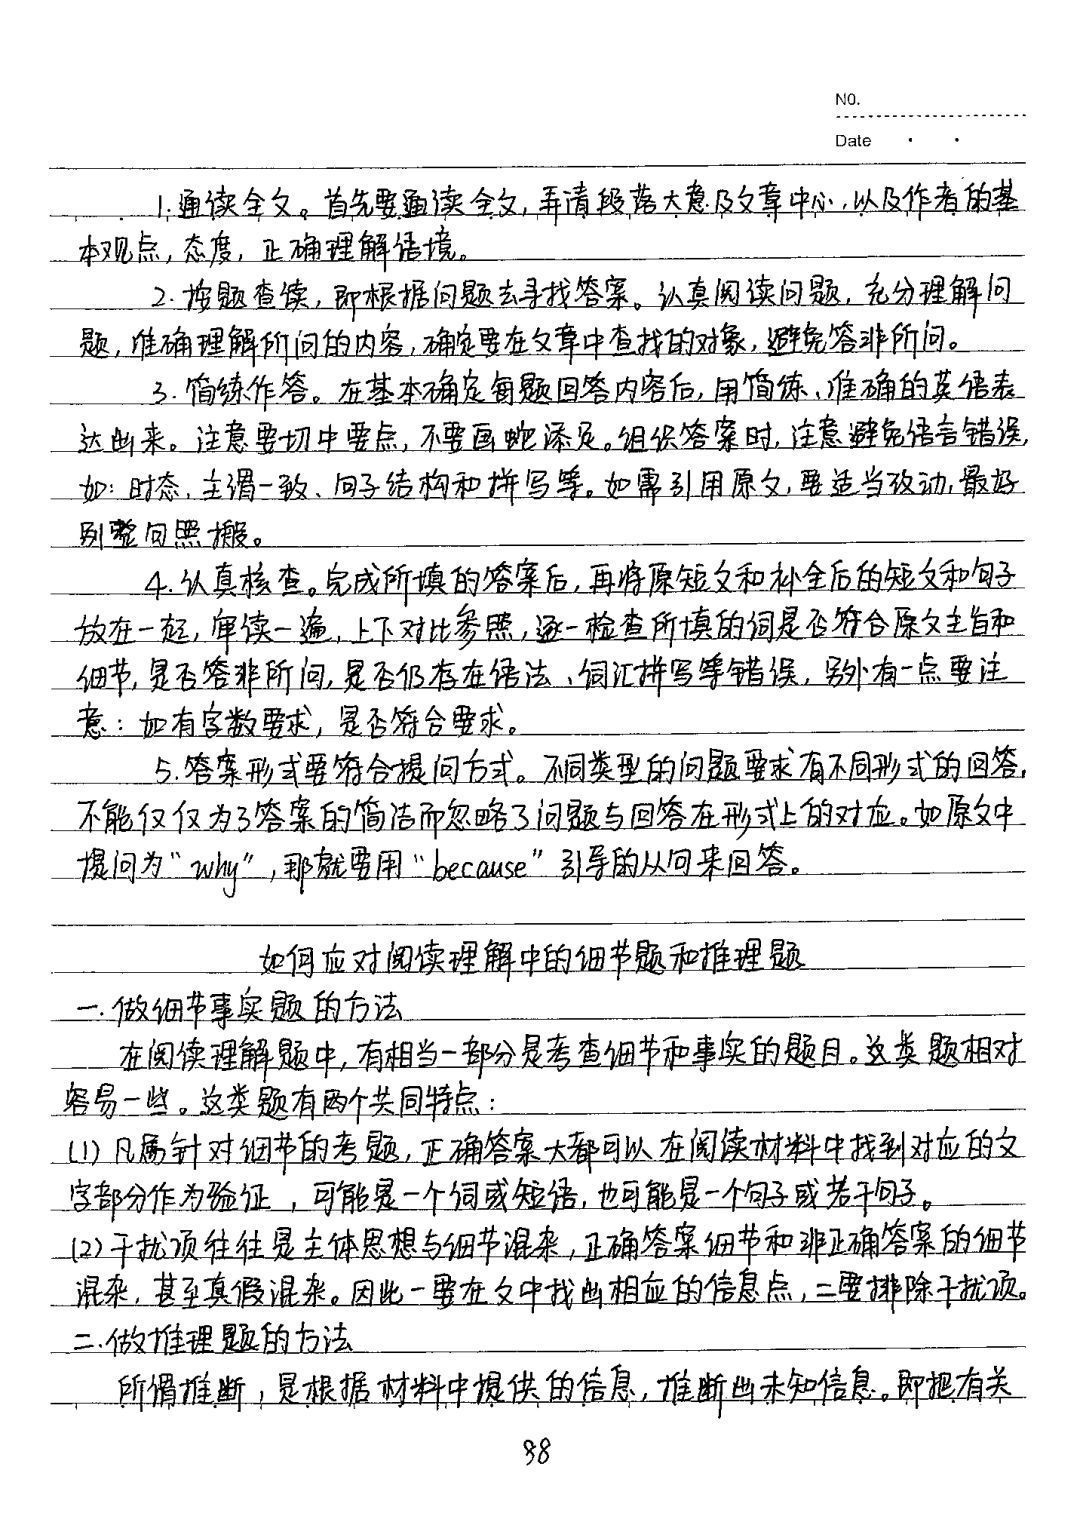 NO.
Date · ·
1.通读全文。首先要通读全文,弄清段落大意及文章中心,以及作者的基
本观点,态度,正确理解语境。
2.按题查读,即根据问题去寻找答案。认真阅读问题,充分理解问
题,准确理解所问的内容,确定要在文章中查找的对象,避免答非所问。
3.简练作答。在基本确定每题回答内容后,用简练、准确的英语表
达出来。注意要切中要点,不要画蛇添足。组织答案时,注意避免语言错误,
如:时态、主谓一致、句子结构和拼写等。如需引用原文,要适当改动,最好
别整句照搬。
4.认真核查。完成所填的答案后,再将原短文和补全后的短文和句子
放在一起,审读一遍,上下对比参照,逐一检查所填的词是否符合原文主旨和
细节,是否答非所问,是否仍存在语法、词汇拼写等错误,另外有一点要注
意:如有字数要求,是否符合要求。
5.答案形式要符合提问方式。不同类型的问题要求有不同形式的回答,
不能仅仅为了答案的简洁而忽略了问题与回答在形式上的对应。如原文中
提问为“why”,那就要用“because”引导的从句来回答。
如何应对阅读理解中的细节题和推理题
一.做细节事实题的方法
在阅读理解题中,有相当一部分是考查细节和事实的题目。这类题相对
容易一些。这类题有两个共同特点:
(1)凡属针对细节的考题,正确答案大都可以在阅读材料中找到对应的文
字部分作为验证,可能是一个词或短语,也可能是一个句子或若干句子。
(2)干扰项往往是主体思想与细节混杂,正确答案细节和非正确答案的细节
混杂,甚至真假混杂。因此一要在文中找出相应的信息点,二要排除干扰项。
二.做推理题的方法
所谓推断,是根据材料中提供的信息,推断出未知信息。即把有关
88